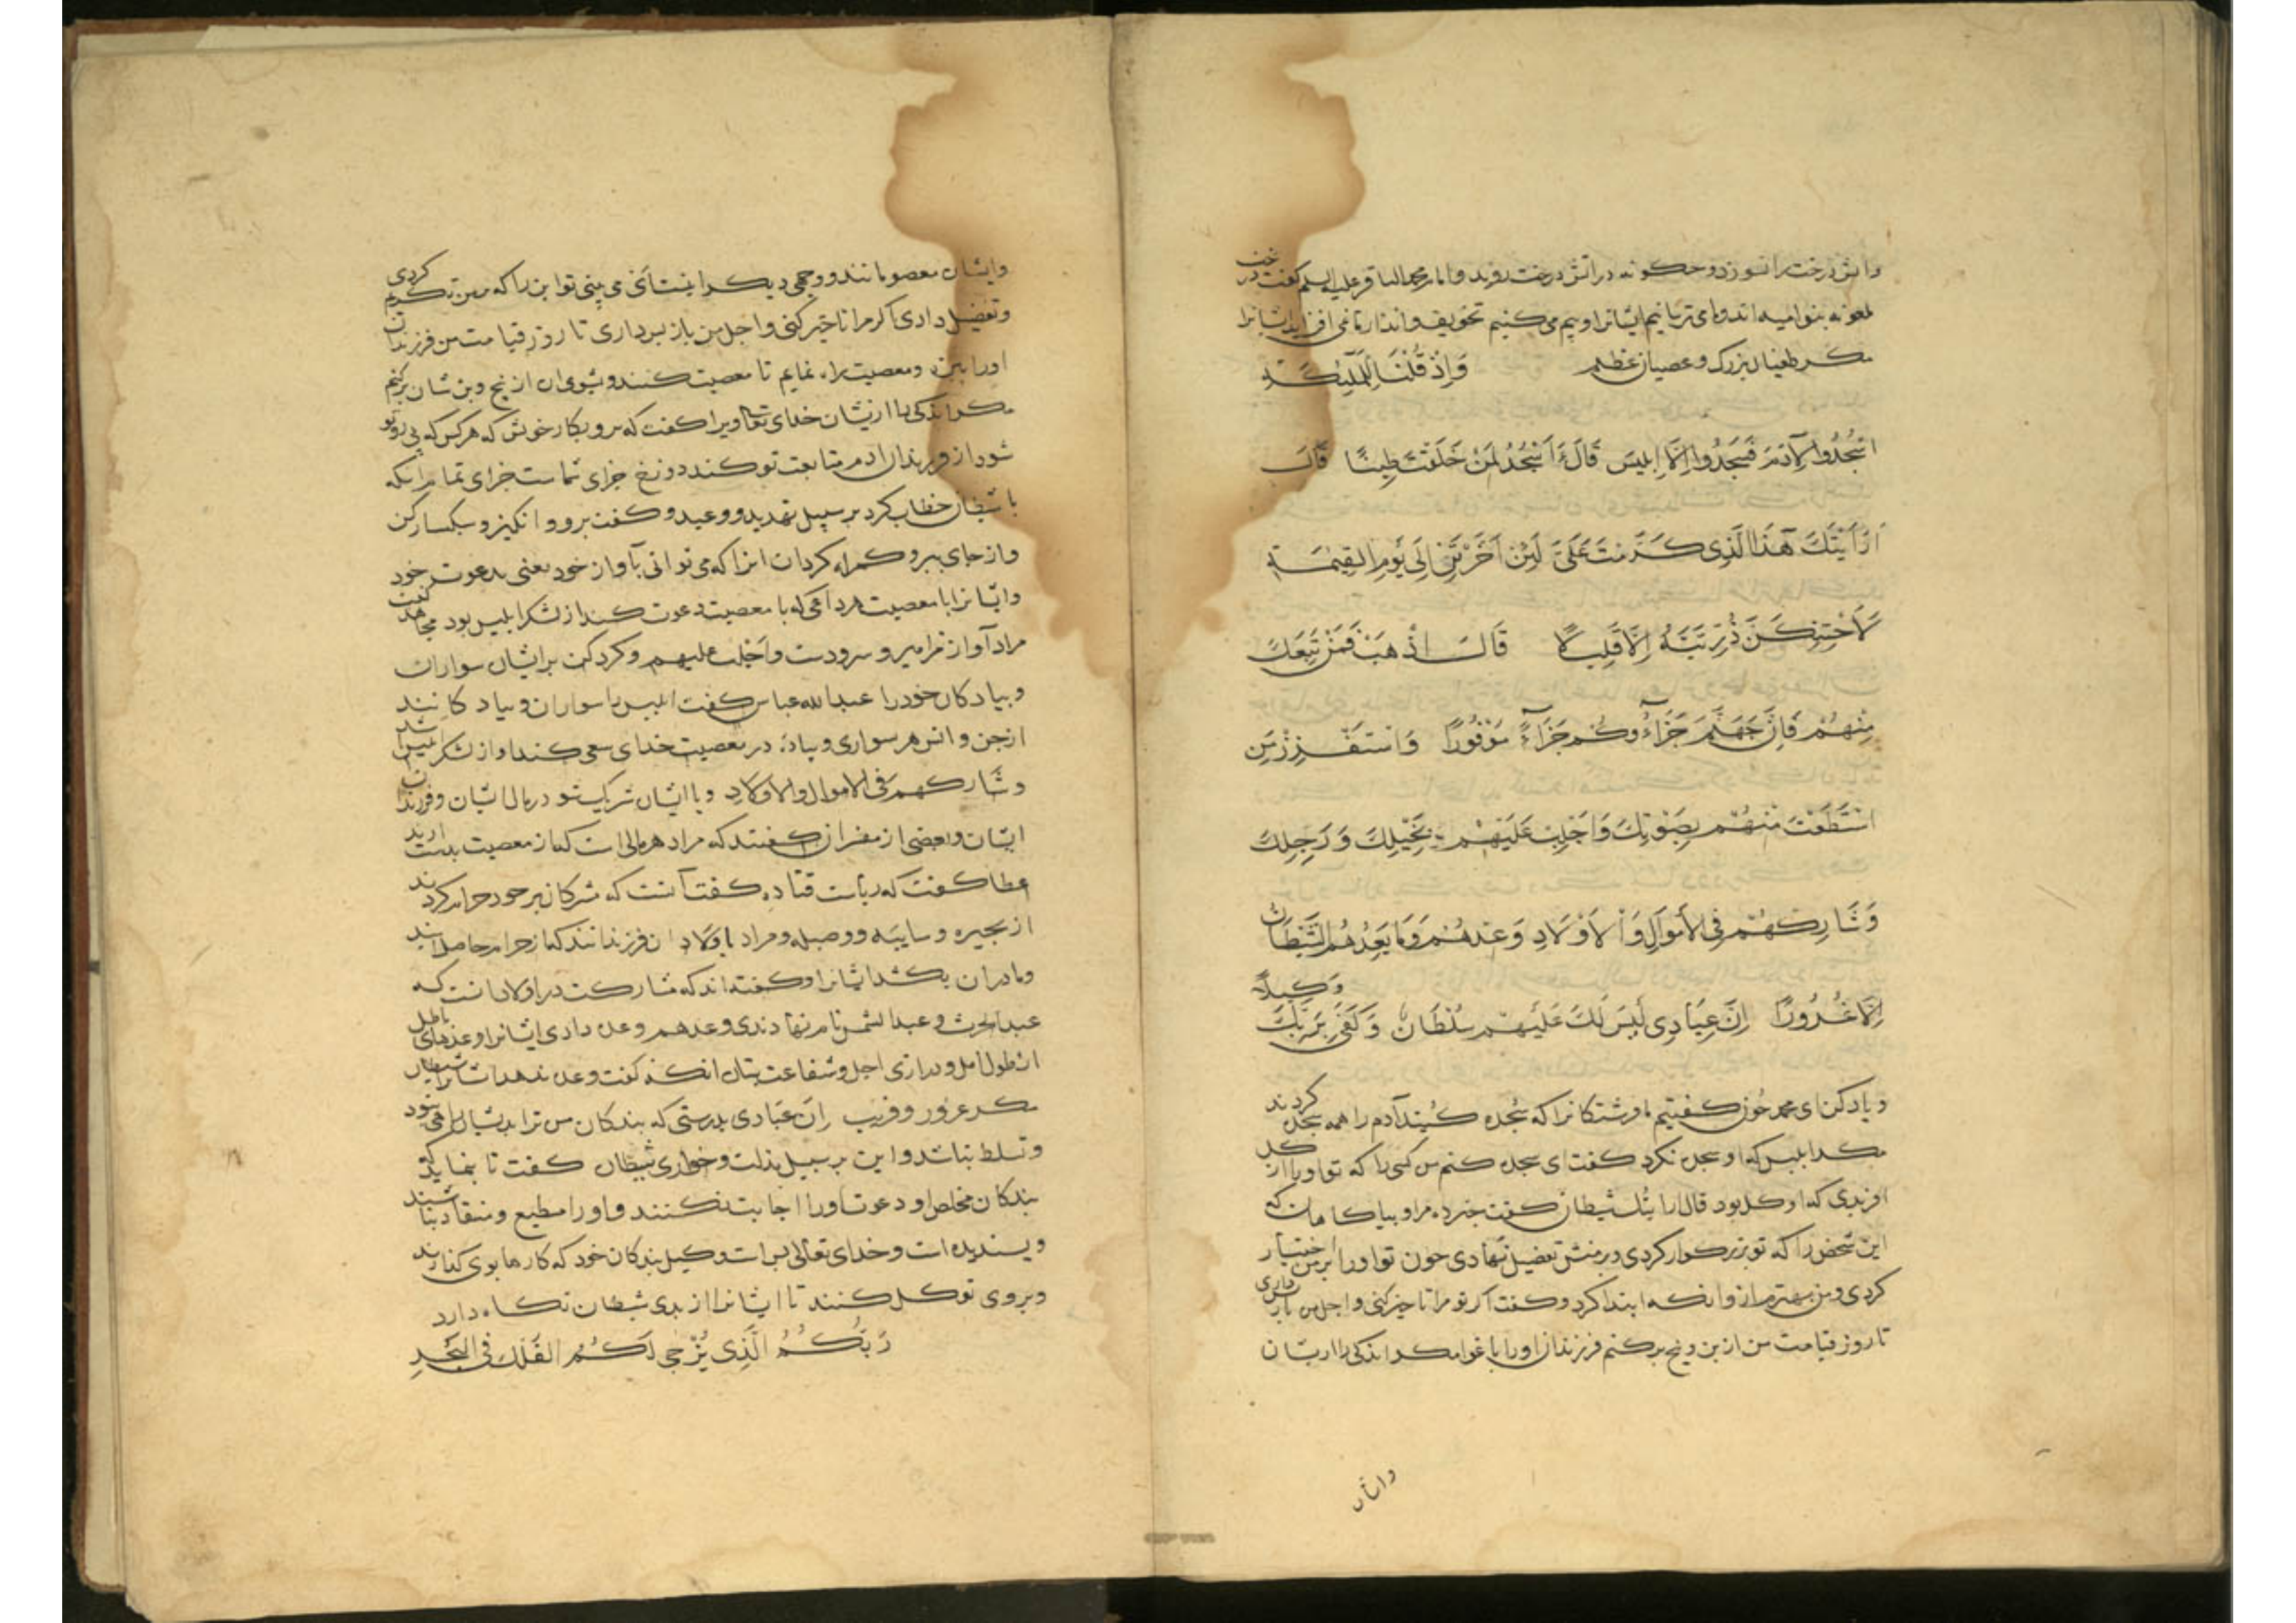 واتش درخت را نسوزد و چگونه در اتش درخت روید و امام محمد الباقر علیه السلم گفت درخت
ملعونه بنو امیه اند و مای ترسانیم ایشانرا و بیم می کنیم تخویف و انذار ما نمی افزاید ایشانرا
مکر طغیان بزرک و عصیان عظیم وَاِذْ قُلْنَا لِلْمَلٰٓئِكَةِ
اسْجُدُوا لِآدَمَ فَسَجَدُوا اِلَّا اِبْلِيسَ قَالَ ءَاَسْجُدُ لِمَنْ خَلَقْتَ طِينًا قَالَ
اَرَاَيْتَكَ هٰذَا الَّذِى كَرَّمْتَ عَلَىَّ لَئِنْ اَخَّرْتَنِ اِلَى يَوْمِ الْقِيٰمَةِ
لَاَحْتَنِكَنَّ ذُرِّيَّتَهُ اِلَّا قَلِيلًا قَالَ اذْهَبْ فَمَنْ تَبِعَكَ
مِنْهُمْ فَاِنَّ جَهَنَّمَ جَزَآؤُكُمْ جَزَآءً مَوْفُورًا وَاسْتَفْزِزْ مَنِ
اسْتَطَعْتَ مِنْهُمْ بِصَوْتِكَ وَاَجْلِبْ عَلَيْهِمْ بِخَيْلِكَ وَرَجِلِكَ
وَشَارِكْهُمْ فِى الْاَمْوَالِ وَالْاَوْلَادِ وَعِدْهُمْ وَمَا يَعِدُهُمُ الشَّيْطَانُ
اِلَّا غُرُورًا اِنَّ عِبَادِى لَيْسَ لَكَ عَلَيْهِمْ سُلْطَانٌ وَكَفَى بِرَبِّكَ وَكِيلًا
و یاد کن ای محمد چون کفتیم ما فرشتکانرا که سجده کنید آدم را همه سجده کردند
مکر ابلیس که او سجده نکرد کفت ای سجده کنم من کسی را که تو او را از کل
افریدی که او کل بود قال ارایتک شیطان کفت خبر ده مرا و بیاکاهان که
این شخص را که تو بزرکوار کردی و بر منش تفضیل نهادی چون تو او را بر من اختیار
کردی و من بهترم از و انکه ابتدا کرد و کفت اکر تو مرا تاخیر کنی و اجل من باز داری
تا روز قیامت من از بن و بیخ بر کنم فرزندان او را باغوا مکر اندکی را از یشان
وایشان
وایشان معصومانند و وجهی دیکر اینست ای می بینی تو این را که بر من تکریم کردی
و تفضیل دادی اکر مرا تاخیر کنی و اجل من باز بس داری تا روز قیامت من فرزندان
او را و معصیت راه نمایم تا معصیت کنند و بشومی ان از بیخ و بن شان بر کنم
مکر اندکی را از یشان خدای تعالی ویرا کفت که برو بکار خویش که هر کس که پی رو تو
شود از فرزندان ادم و متابعت تو کنند دوزخ جزای شماست جزای تمام انکه
با شیطان خطاب کرد بر سبیل تهدید و وعید و کفت برو و انکیز و سبکسار کن
و از جای ببر و کمراه کردان انرا که می توانی بآواز خود یعنی بدعوت خود
وایشانرا با معصیت هر داعی که با معصیت دعوت کند از لشکر ابلیس بود مجاهد کفت
مراد آواز مزامیر و سرودست و اجلب علیهم و کرد کن بر ایشان سواران
و پیادکان خود را عبد الله عباس کفت ابلیس را سواران و پیادکانند
از جن و انس هر سواری و پیاده در معصیت خدای سعی کند او از لشکر ابلیس باشد
و شارکهم فی الاموال والاولاد و با ایشان شریک شو در مال ایشان و فرزندان
ایشان و بعضی از مفسران کفتند که مراد هر مالی است که از معصیت بدست ارند
عطا کفت که رباست قتاده کفت آنست که مشرکان بر خود حرام کردند
از بحیره و سایبه و وصیله و مراد باولاد ان فرزندانند که از حرام حاصل ایند
و مادران بکشند ایشانرا و کفته اند که مشارکت در اولاد انست که
عبد الحرث و عبد الشمس نام نهادند و عدهم و وعده دادی ایشانرا وعدهای باطل
از طول امل و درازی اجل و شفاعت بتان انکه کفت وعده ندهد ایشانرا شیطان
مکر غرور و فریب ان عبادی بدرستی که بندکان من ترا بر یشان راهی نبود
و تسلط نباشد و این بر سبیل مذلت و خواری شیطان کفت تا بنماید که
بندکان مخلص او دعوت او را اجابت نکنند و او را مطیع و منقاد نباشند
و بسندیده است و خدای تعالی بس است وکیل بندکان خود که کارها بوی کذارند
و بروی توکل کنند تا ایشانرا از بدی شیطان نکاه دارد
رَبُّكُمُ الَّذِى يُزْجِى لَكُمُ الْفُلْكَ فِى الْبَحْرِ